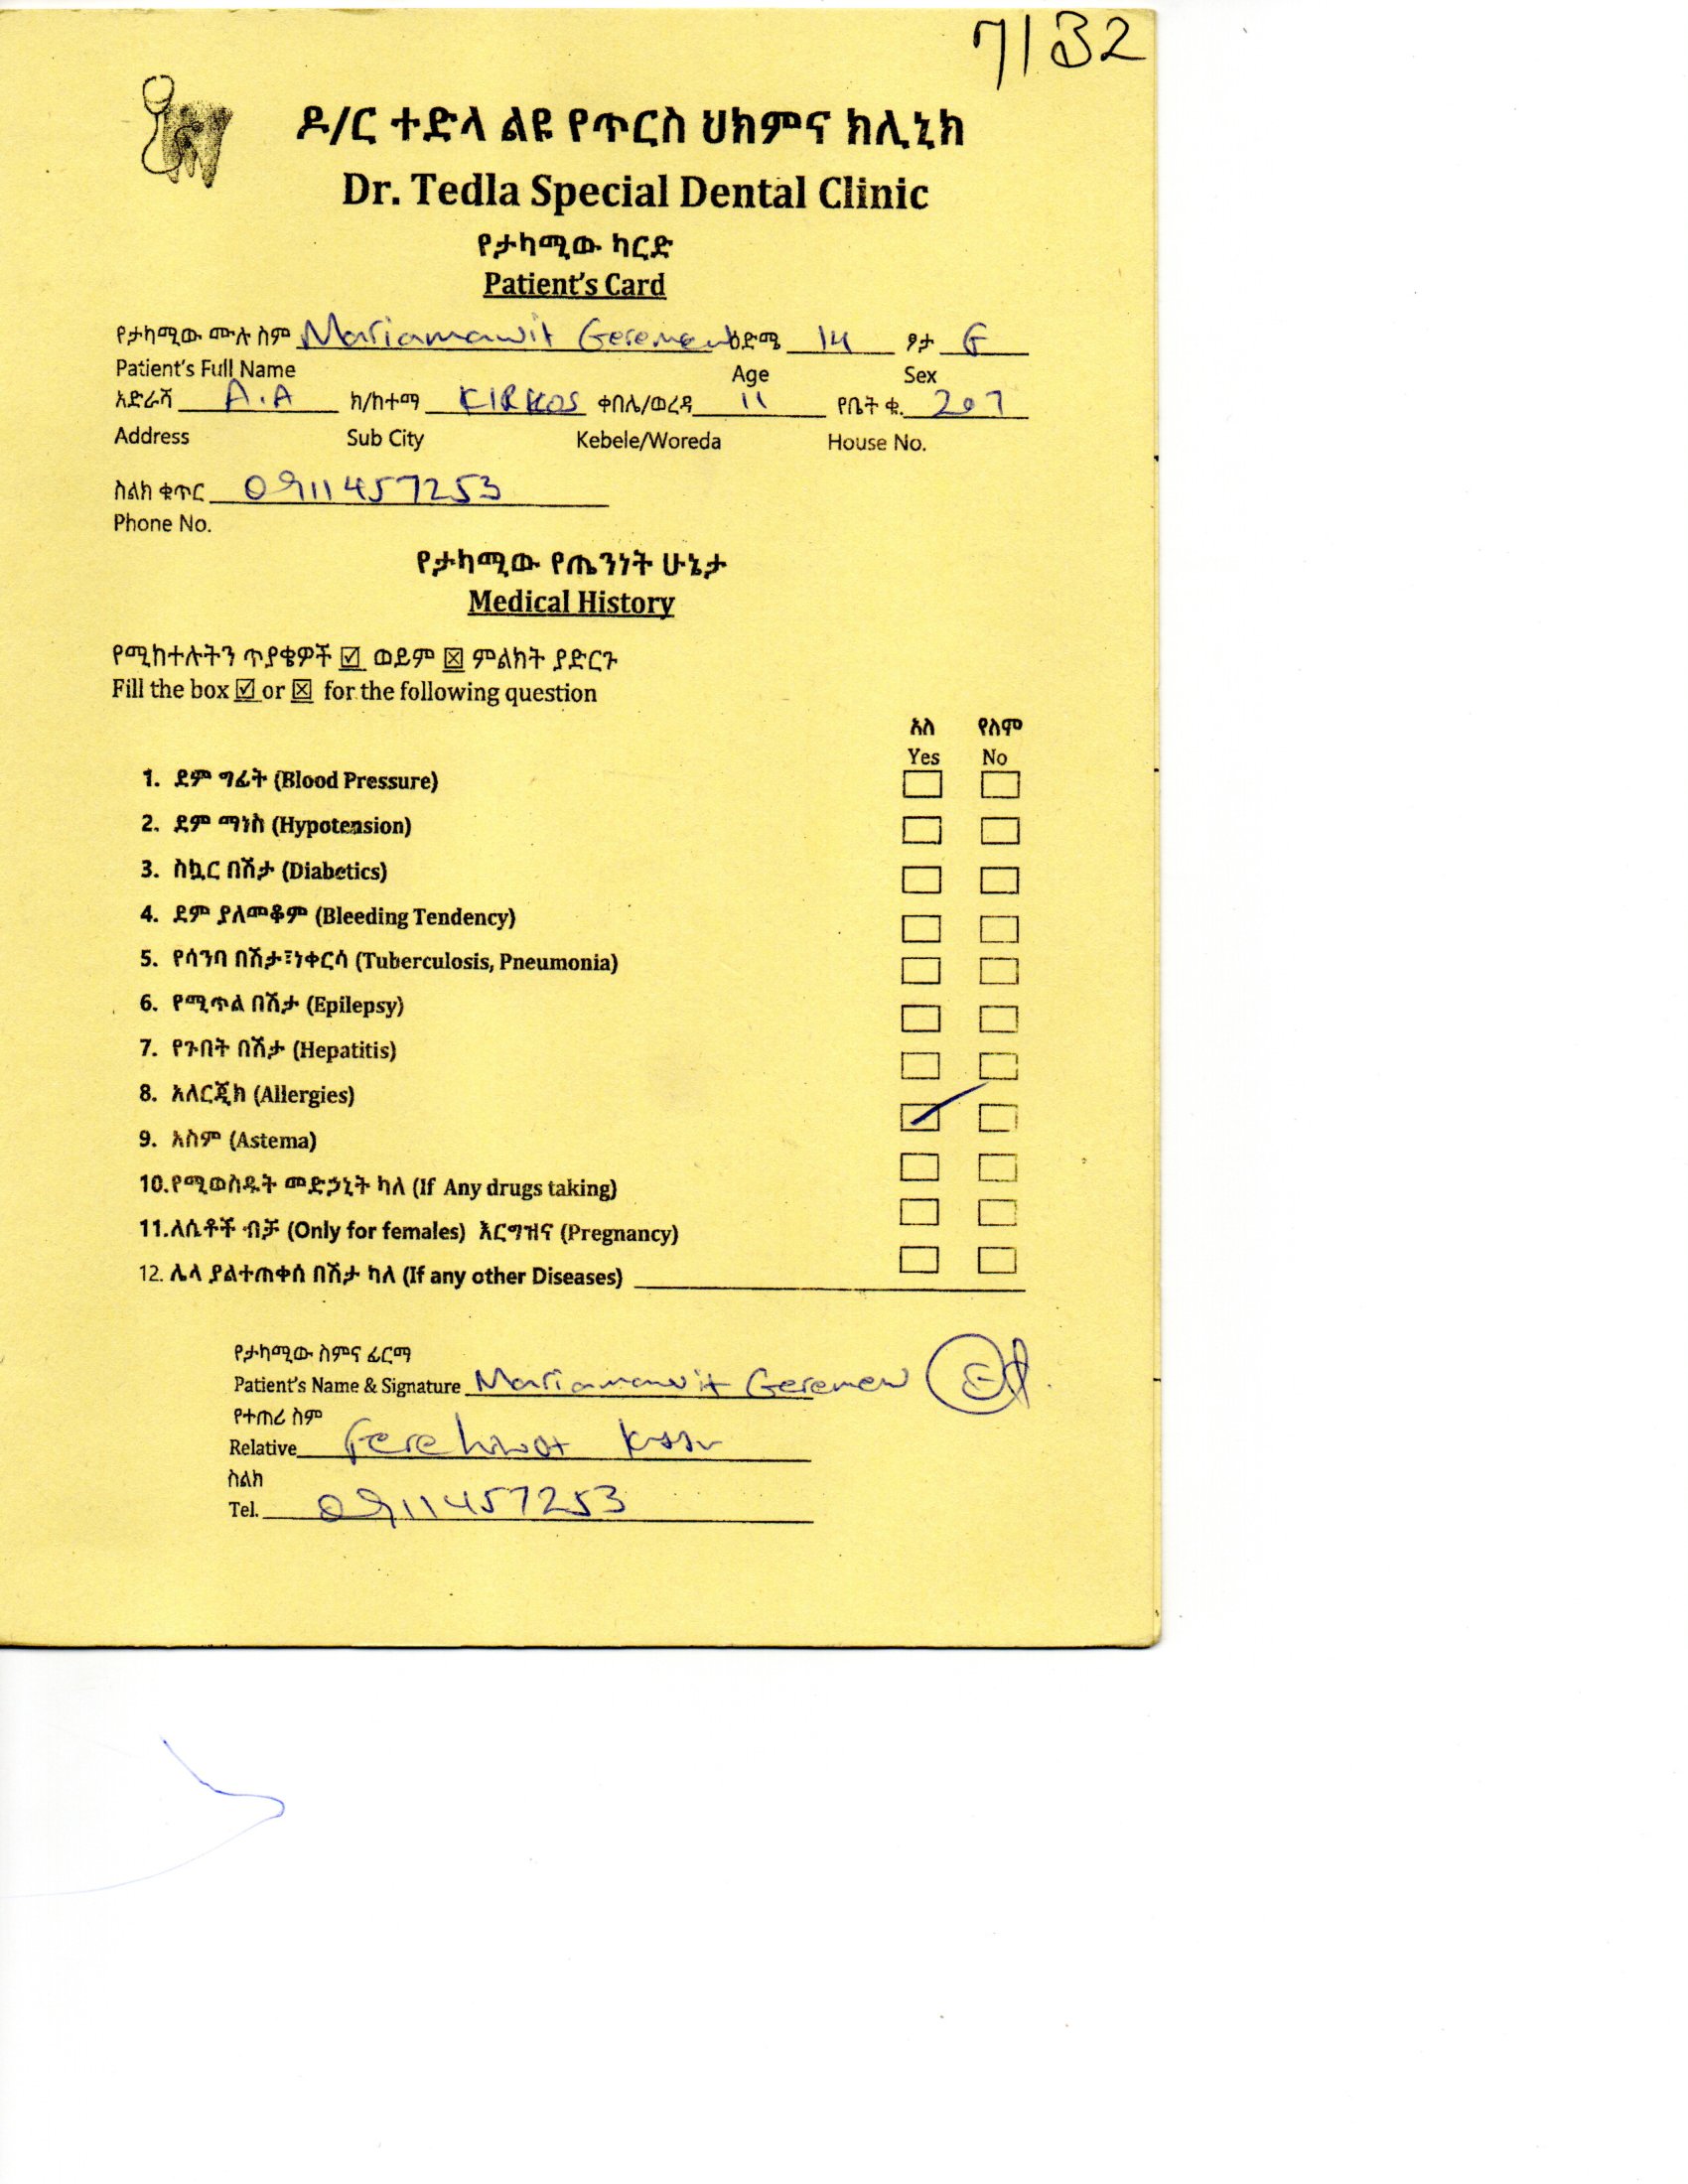 7132
ዶ/ር ተድላ ልዩ የጥርስ ህክምና ክሊኒክ
Dr. Tedla Special Dental Clinic
የታካሚው ካርድ
Patient's Card
የታካሚው ሙሉ ስም Mariamawit Geremew ዕድሜ 14 ፆታ G
Patient's Full Name Age Sex
አድራሻ A.A ክ/ከተማ KIRKOS ቀበሌ/ወረዳ 11 የቤት ቁ. 207
Address Sub City Kebele/Woreda House No.
ስልክ ቁጥር 0911457253
Phone No.
የታካሚው የጤንነት ሁኔታ
Medical History
የሚከተሉትን ጥያቄዎች ☑ ወይም ☒ ምልክት ያድርጉ
Fill the box ☑ or ☒ for the following question
አለ የለም
Yes No
1. ደም ግፊት (Blood Pressure)
2. ደም ማነስ (Hypotension)
3. ስኳር በሽታ (Diabetics)
4. ደም ያለመቆም (Bleeding Tendency)
5. የሳንባ በሽታ፣ነቀርሳ (Tuberculosis, Pneumonia)
6. የሚጥል በሽታ (Epilepsy)
7. የጉበት በሽታ (Hepatitis)
8. አለርጂክ (Allergies)
9. አስም (Astema)
10.የሚወስዱት መድኃኒት ካለ (If Any drugs taking)
11.ለሴቶች ብቻ (Only for females) እርግዝና (Pregnancy)
12. ሌላ ያልተጠቀሰ በሽታ ካለ (If any other Diseases)
የታካሚው ስምና ፊርማ
Patient's Name & Signature Mariamawit Geremew
የተጠሪ ስም
Relative
ስልክ
Tel. 0911457253